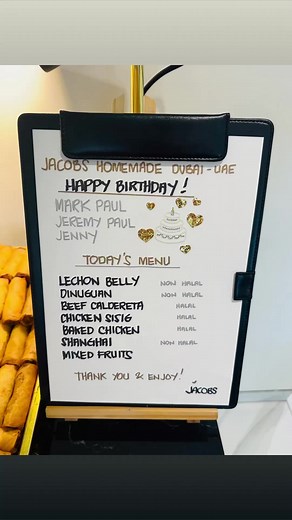 JACOBS HOMEMADE DUBAI - UAE
HAPPY BIRTHDAY!
MARK PAUL
JEREMY PAUL
JENNY
TODAY'S MENU
LECHON BELLY NON HALAL
DINUGUAN NON HALAL
BEEF CALDERETA HALAL
CHICKEN SISIG HALAL
BAKED CHICKEN HALAL
SHANGHAI NON HALAL
MIXED FRUITS
THANK YOU & ENJOY!
JACOBS